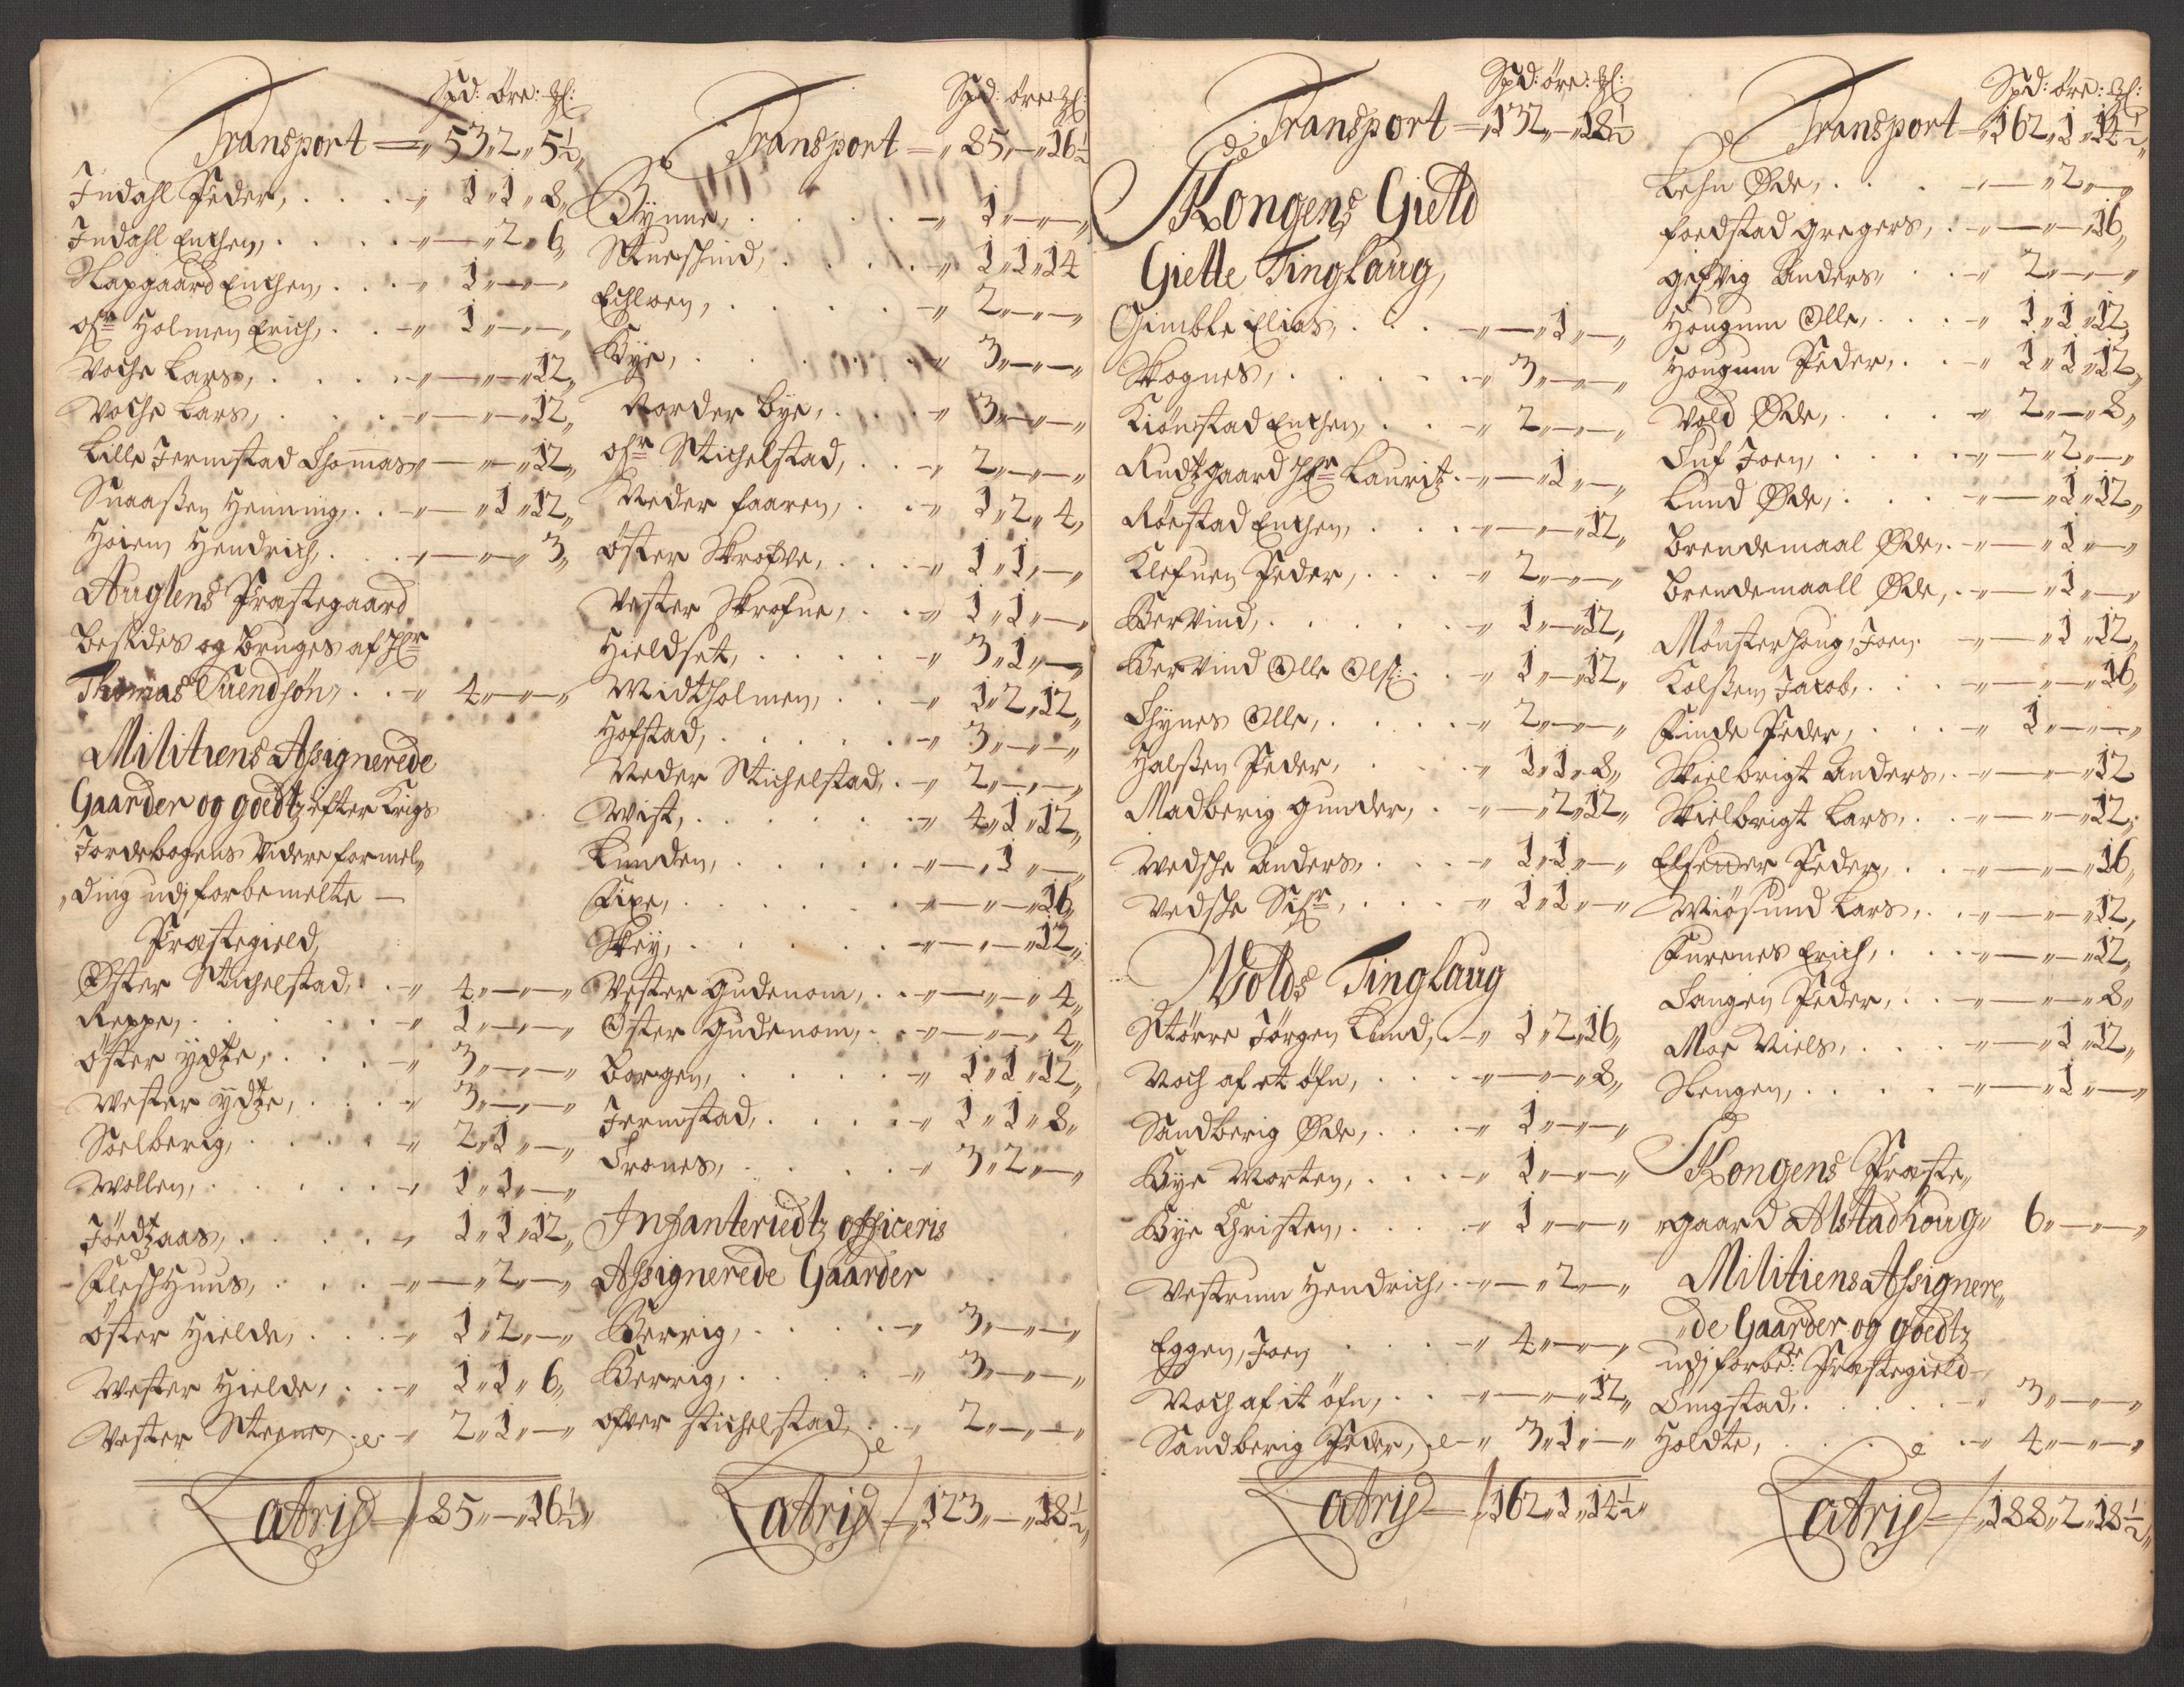 Spd: öre: ʒl:
Transport = „ 53 „ 2 „ 5½ „
Indahl Peder, . . . „ 1 „ 1 „ 8 „
Indahl Enchen, . . . „ — „ 2 „ 6 „
Slapgaard Enchen, . . „ 1 „ — „ —
Ofr Holmen Erich, . . „ 1 „ — „ — „
Voche Lars, . . . „ — „ — „ 12 „
Voche Lars, . . . „ — „ — „ 12 „
Lille Jermstad Thomas „ — „ — „ 12 „
Snaaßen Henning, . . „ — „ 1 „ 12 „
Hoien Hendrich, . . . „ — „ — „ 3 „
Auglens Præstegaard
besides og bruges af Hr
Thomas Suendsön, . . „ 4 „ — „ — „
Militiens Assignerede
Gaarder og goedtz efter Krigs
Jordebogens Videre formel„
„ding udj forbemelte —
Præstegield,
Öster Stichelstad, . „ 4 „ — „ — „
Reppe, . . . . „ 1 „ — „ — „
öster ydtze, . . . „ 3 „ — „ — „
Wester ydtze, . . . „ 3 „ — „ — „
Soelberig, . . . . „ 2 „ 1 „ — „
Wollen, . . . . „ 1 „ 1 „ — „
Jöedtzaas, . . . . „ 1 „ 1 „ 12 „
Fleschhuus, . . . „ — „ 2 „ — „
öster Hielde, . . . „ 1 „ 2 „ — „
Wester Hielde, . . „ 1 „ 1 „ 6 „
Vester Steene, . . „ 2 „ 1 „ — „
Latris „ 85 „ — „ 16½ „
Spd: öre: ʒl:
Transport = „ 85 „ — „ 16½
Bynne, . . . . „ 1 „ — „ — „
Stueschind, . . . „ 1 „ 1 „ 14
Echloen, . . . . „ 2 „ — „ — „
Bye, . . . . „ 3 „ — „ — „
Norder bye, . . . „ 3 „ — „ — „
ofr Stichelstad, . . „ 2 „ — „ — „
Neder faaren, . . „ 1 „ 2 „ 4 „
öster Skrofve, . . . „ 1 „ 1 „ — „
Vester Skrofue, . . „ 1 „ 1 „ — „
Hieldset, . . . . „ 3 „ 1 „ — „
Midtholmen, . . „ 1 „ 2 „ 12 „
Hofstad, . . . . „ 3 „ — „ — „
Neder Stichelstad, . „ 2 „ — „ — „
Wist, . . . . . „ 4 „ 1 „ 12 „
Lunden, . . . . „ — „ 1 „ — „
Kixe, . . . . . „ — „ — „ 16 „
Skey, . . . . . „ — „ — „ 12 „
Vester Gudenom, . . „ — „ — „ 4 „
Öster Gudenom, . . „ — „ — „ 4 „
Borgen, . . . . „ 1 „ 1 „ 12 „
Jermstad, . . . . „ 1 „ 1 „ 8 „
Trones, . . . . „ 3 „ 2 „ — „
Infanteriedtz officeris
Assignerede Gaarder
Berrig, . . . . „ 3 „ — „ — „
Berrig, . . . . „ 3 „ — „ — „
ofver stichelstad, . . „ 2 „ — „ — „
Latris „ 123 „ — „ 18½ „
Spd: öre: ʒl:
Transport = „ 132 „ — „ 18½
SKongens Gield
Gielle Tinglaug,
Gimble Elias, . . . „ — „ 1 „ — „
Skognes, . . . . „ 3 „ — „ — „
Kiönstad Enchen, . . „ 2 „ — „ — „
Rudtzgaard Hr Lauritz . „ — „ 1 „ — „
Röestad Enchen, . . . „ — „ — „ 12 „
Klefuen Peder, . . . „ 2 „ — „ — „
Bervind, . . . . „ 1 „ — „ 12 „
Bervind Olle Ols: . . „ 1 „ — „ 12 „
Thynes Olle, . . . „ 2 „ — „ — „
Halßen Peder, . . . „ 1 „ 1 „ 8 „
Madberig Gunder, . . „ — „ 2 „ 12 „
Wedshe Anders, . . . „ 1 „ 1 „ — „
Vedshe Sifr, . . . „ 1 „ 1 „ — „
Wolds Tinglaug
Större Jörgen Lund, . „ 1 „ 2 „ 16 „
Noch af et öfn, . . . „ — „ — „ 8 „
Sandberig Öde, . . . „ 1 „ — „ — „
Bye Morten, . . . „ 1 „ — „ — „
Bye Christen, . . . „ 1 „ — „ — „
Vestrum Hendrich, . „ — „ 2 „ — „
Eggen, Joen . . . „ 4 „ — „ — „
Noch af it öfn, . . „ — „ — „ 12 „
Sandberig Peder, „ 3 „ 1 „ — „
Latris = „ 162 „ 1 „ 14½ „
Spd: öre: ʒl:
Transport = „ 162 „ 1 „ 14½ „
Lehn Öde, . . . „ — „ 2 „ — „
foedstad Gregers, . „ — „ — „ 16 „
Gifvig Anders, . . „ 2 „ — „ — „
Hougum Olle, . . . „ 1 „ 1 „ 12 „
Hougum Peder, . . „ 1 „ 1 „ 12 „
Vold Öde, . . . „ 2 „ — „ 8 „
Tuf Joen, . . . . „ — „ 2 „ — „
Lund Öde, . . . „ — „ 1 „ 12 „
Brendemaal Öde, . „ — „ 1 „ — „
Brendemaall Öde, . „ — „ 1 „ — „
Mönsterhoug, Joen . „ — „ 1 „ 12 „
Kolßen Jacob, . . . „ — „ — „ 16 „
Finde Peder, . . . „ 1 „ — „ — „
Skielbrigt Anders, . „ — „ — „ 12
Skielbrigt Lars, . . „ — „ — „ 12 „
Elfender Peder, . . „ — „ — „ 16 „
Miösund Lars, . . „ — „ — „ 12 „
Furenes Erich, . . . „ — „ — „ 12 „
Tangen Peder, . . „ — „ — „ 8 „
Moe Niels, . . . „ — „ 1 „ 12 „
Slengen, . . . . „ — „ 1 „ — „
SKongens Præste„
„gaard Alstadhoug „ 6 „ — „ — „
Militiens Assignere„
„de Gaarder og goedtz
udj forbe:te Præstegield —
Tingstad, . . . . „ 3 „ — „ — „
Holdte, . . . . „ 4 „ — „ — „
Latris = „ 188 „ 2 „ 18½ „